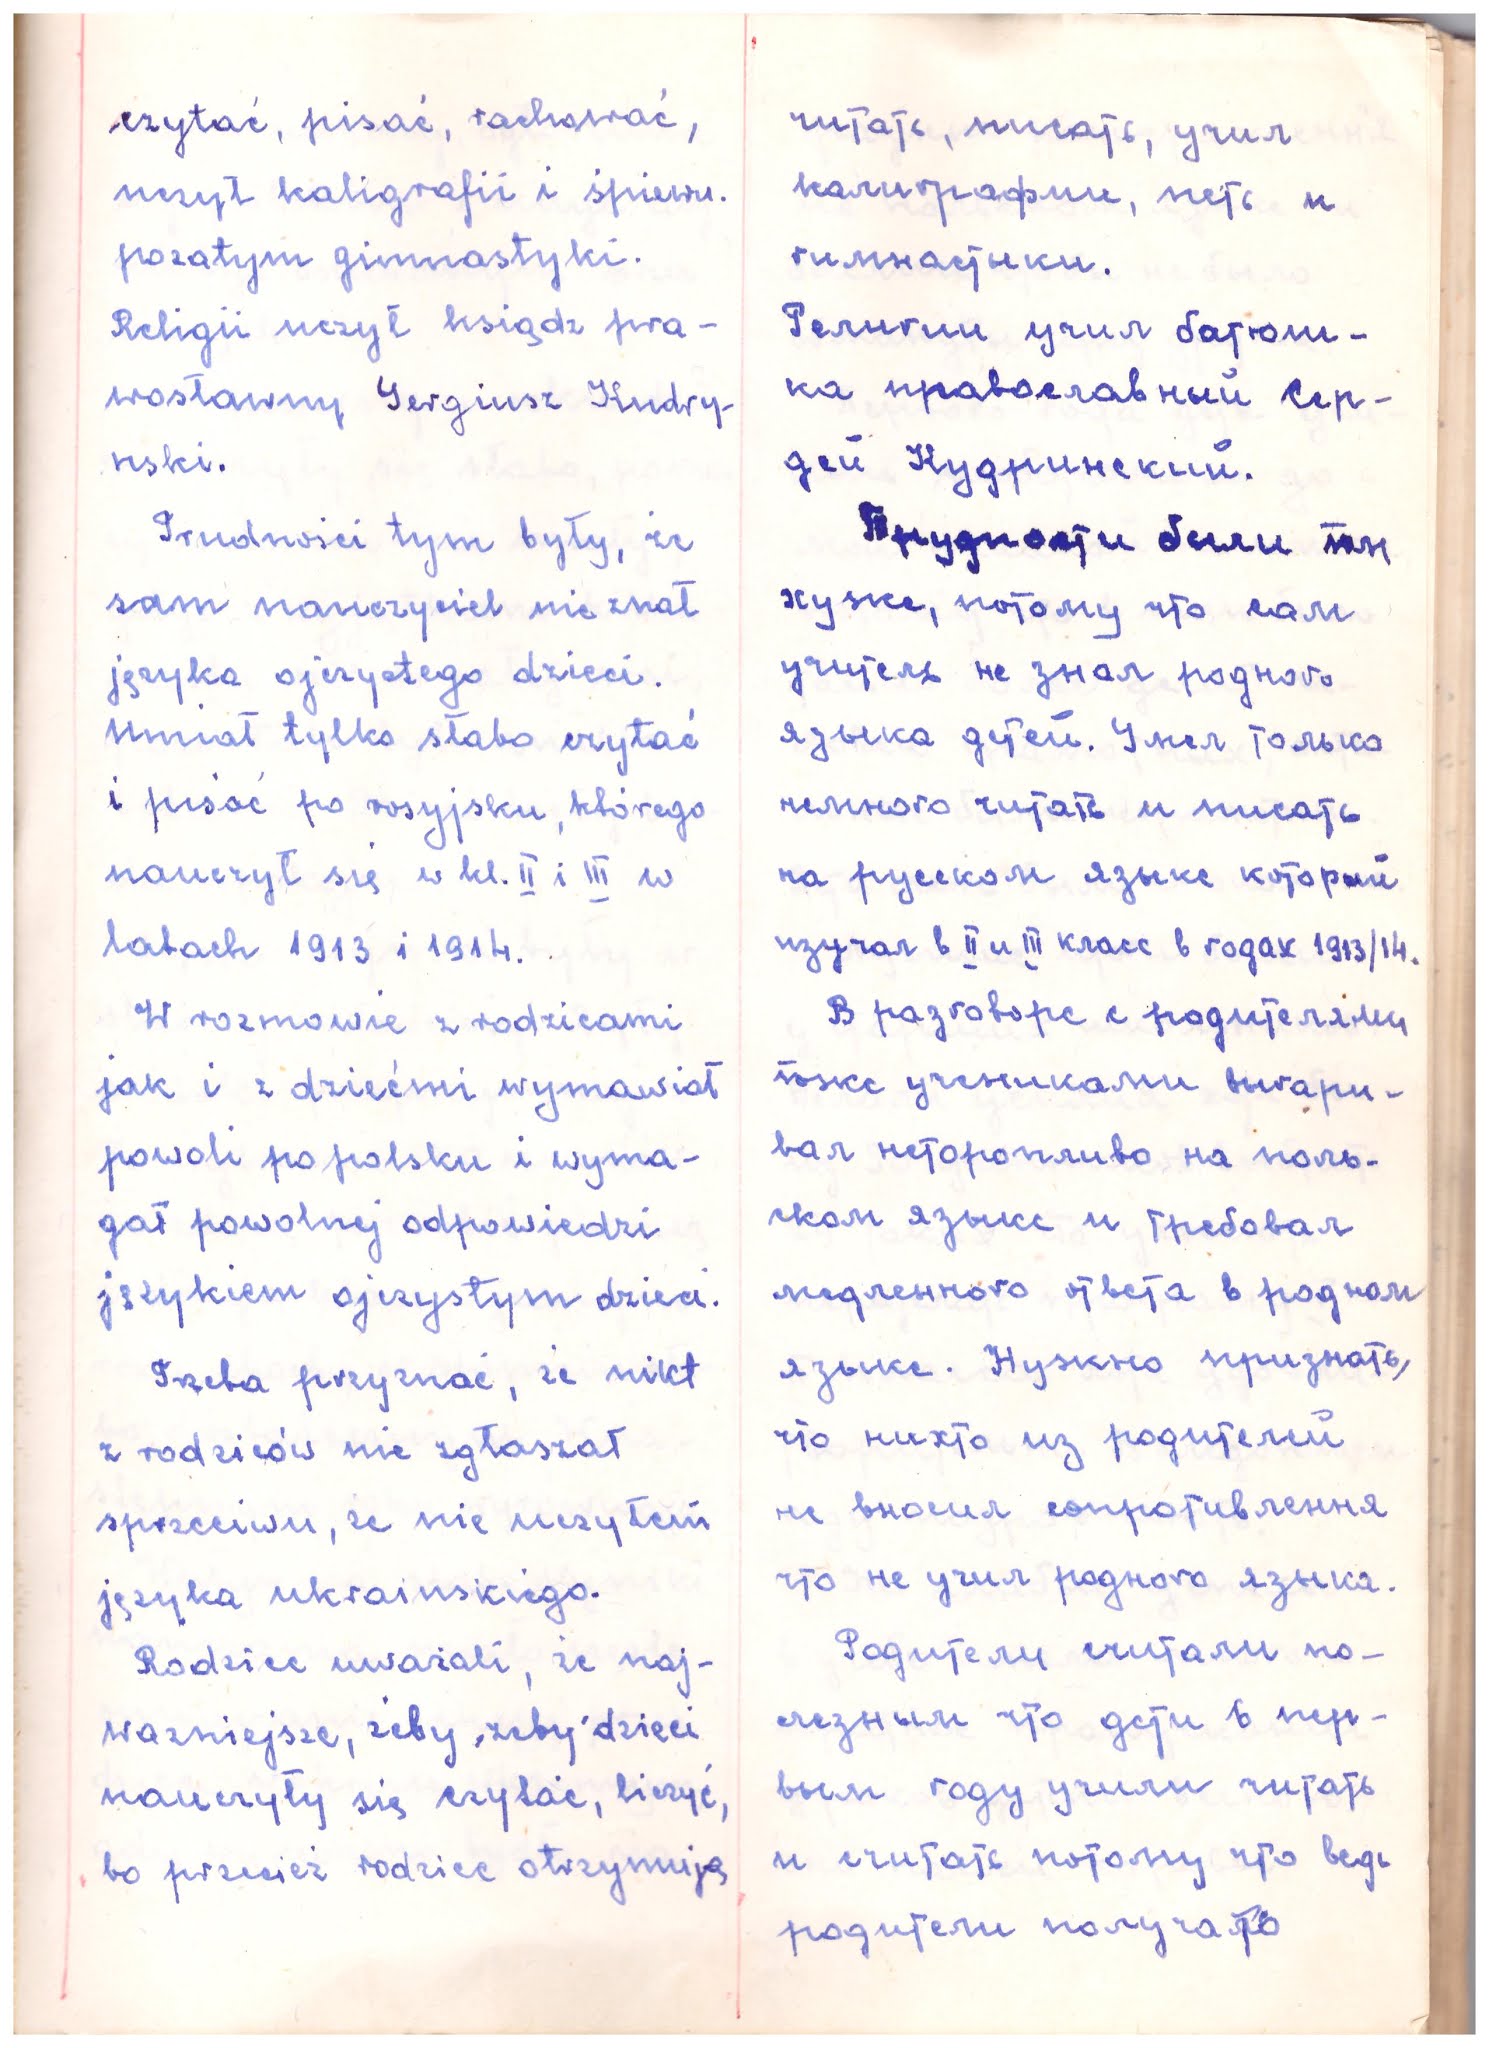 czytać, pisać, rachować,
uczył kaligrafii i śpiewu.
pozatym gimnastyki.
Religii uczył ksiądz pra-
wosławny Sergiusz Kudry-
nski.
Trudności tym były, że
sam nauczyciel nie znał
języka ojczystego dzieci.
Umiał tylko słabo czytać
i pisać po rosyjsku, którego
nauczył się w kl. II i III w
latach 1913 i 1914.
W rozmowie z rodzicami
jak i z dziećmi wymawiał
powoli po polsku i wyma-
gał powolnej odpowiedzi
językiem ojczystym dzieci.
Trzeba przyznać, że nikt
z rodziców nie zgłaszał
sprzeciwu, że nie uczyłem
języka ukrainskiego.
Rodzice uważali, że naj-
wazniejsze, żeby, żeby dzieci
nauczyły się czytać, liczyć,
bo przecież rodzice otrzymują
читать, писать, учил
калиграфии, петь и
гимнастыки.
Религии учил батюш-
ка православный Сер-
гей Кудринский.
Трудности были тым
хуже, потому что сам
учитель не знал родного
языка детей. Умел только
немного читать и писать
на русском языке который
изучал в II и III класс в годах 1913/14.
В разговоре с родителями
тоже учениками выгари-
вал неторопливо на поль-
ском языке и требовал
медленного ответа в родном
языке. Нужно признать,
что нихто из родителей
не вносил сопротивлення
что не учил родного языка.
Родители считали по-
лезным что дети в пер-
вым году учили читать
и считать потому что ведь
родители получаю